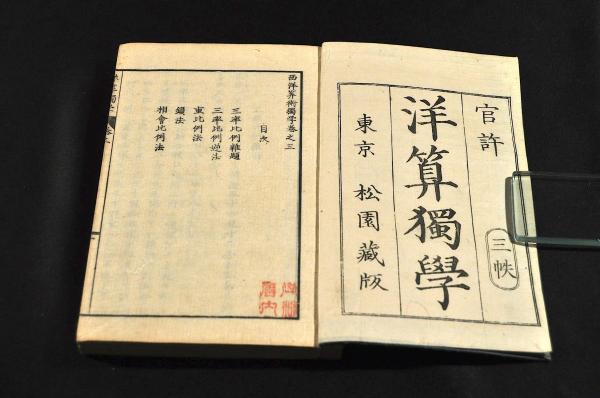 官許
三帙
洋算獨學
東京 松園藏版
西洋算術獨學卷之三
目次
三率比例雜題
三率比例逆法
東比例法
鎖法
相會比例法